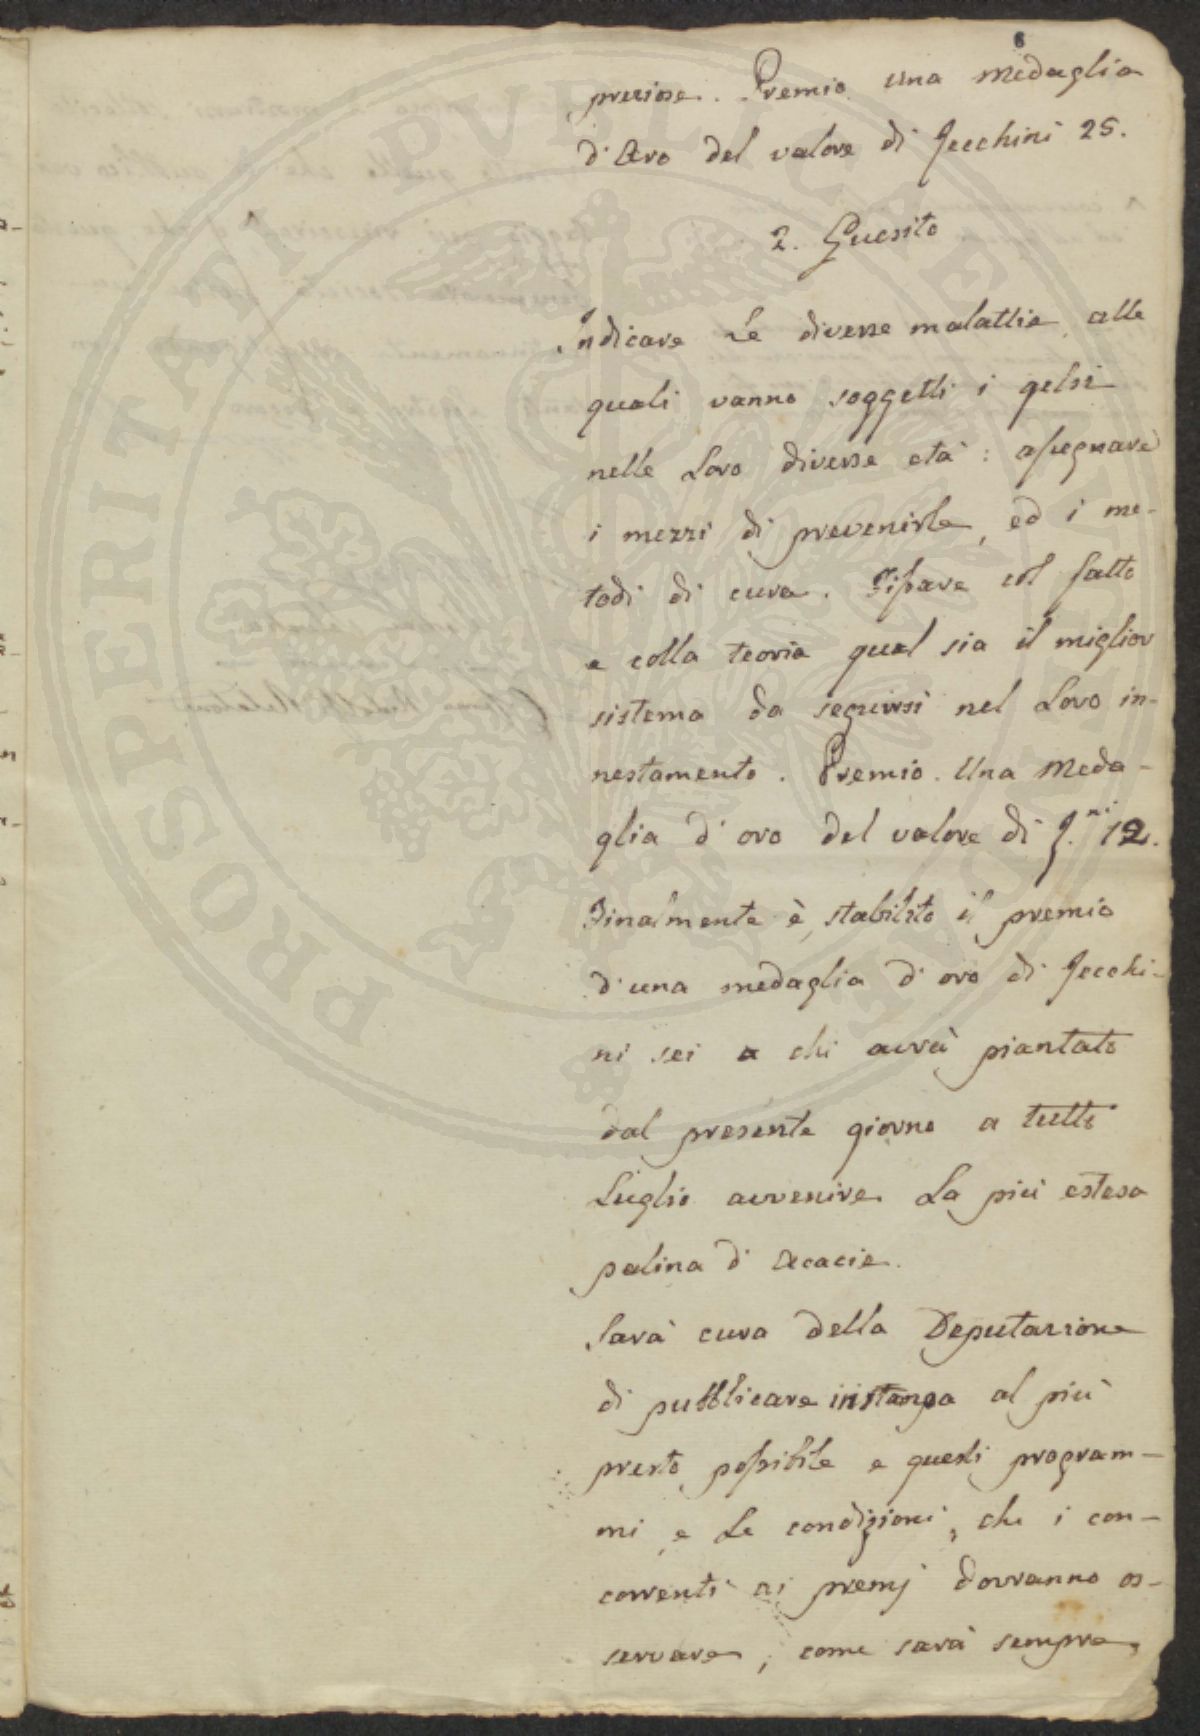 6
preziose. Premio una medaglia
d'Oro del valore di Zecchini 25.
2. Quesito
Indicare Le diverse malattie alle
quali vanno soggetti i gelsi
nelle Loro diverse età : assegnare
i mezzi di prevenirle, ed i me-
todi di cura. Fissare col fatto
e colla teoria qual sia il miglior
sistema da seguirsi nel Loro in-
nestamento. Premio. Una Meda-
glia d'oro del valore di Z.ni 12.
Finalmente è stabilito il premio
d'una medaglia d'oro di Zecchi-
ni sei a chi avrà piantato
dal presente giorno a tutto
Luglio avvenire La più estesa
palina d'Acacie.
Sarà cura della Deputazione
di pubblicare in stampa al più
presto possibile e questi program-
mi, e Le condizioni, che i con-
correnti ai premj dovranno os-
servare, come sarà sempre,
PROSPERITATI PVBLICAE AVGENDAE